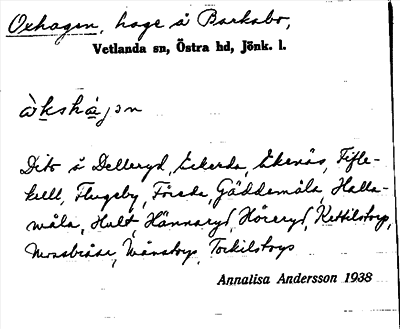 Oxhagen, hage å Barkabo,
Vetlanda sn, Östra hd, Jönk. l.
Dito å Delleryd, Eckerda, Ekenäs, Fifle-
kull, Flugeby, Förada, Gäddemåla, Halla-
måla, Hult, Hännaryd, Höreryd, Kettilstorp,
Mossbräda, Tvånstorp, Torkilstorp
Annalisa Andersson 1938